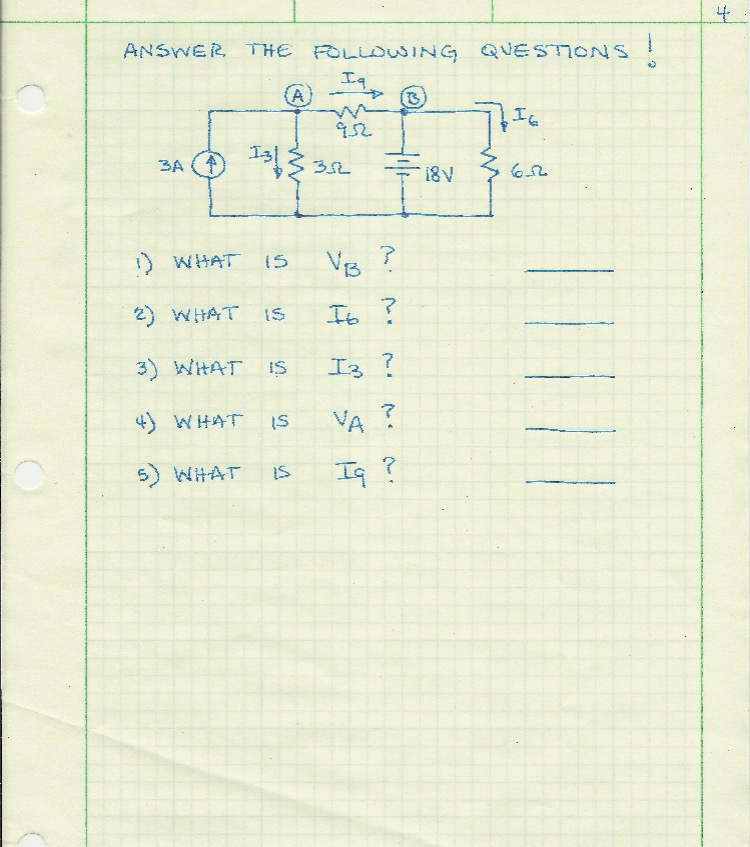 4
ANSWER THE FOLLOWING QUESTIONS!
A I9 B
I6
9Ω
3A I3 3Ω 18V 6Ω
1) WHAT IS VB ?
2) WHAT IS I6 ?
3) WHAT IS I3 ?
4) WHAT IS VA ?
5) WHAT IS I9 ?